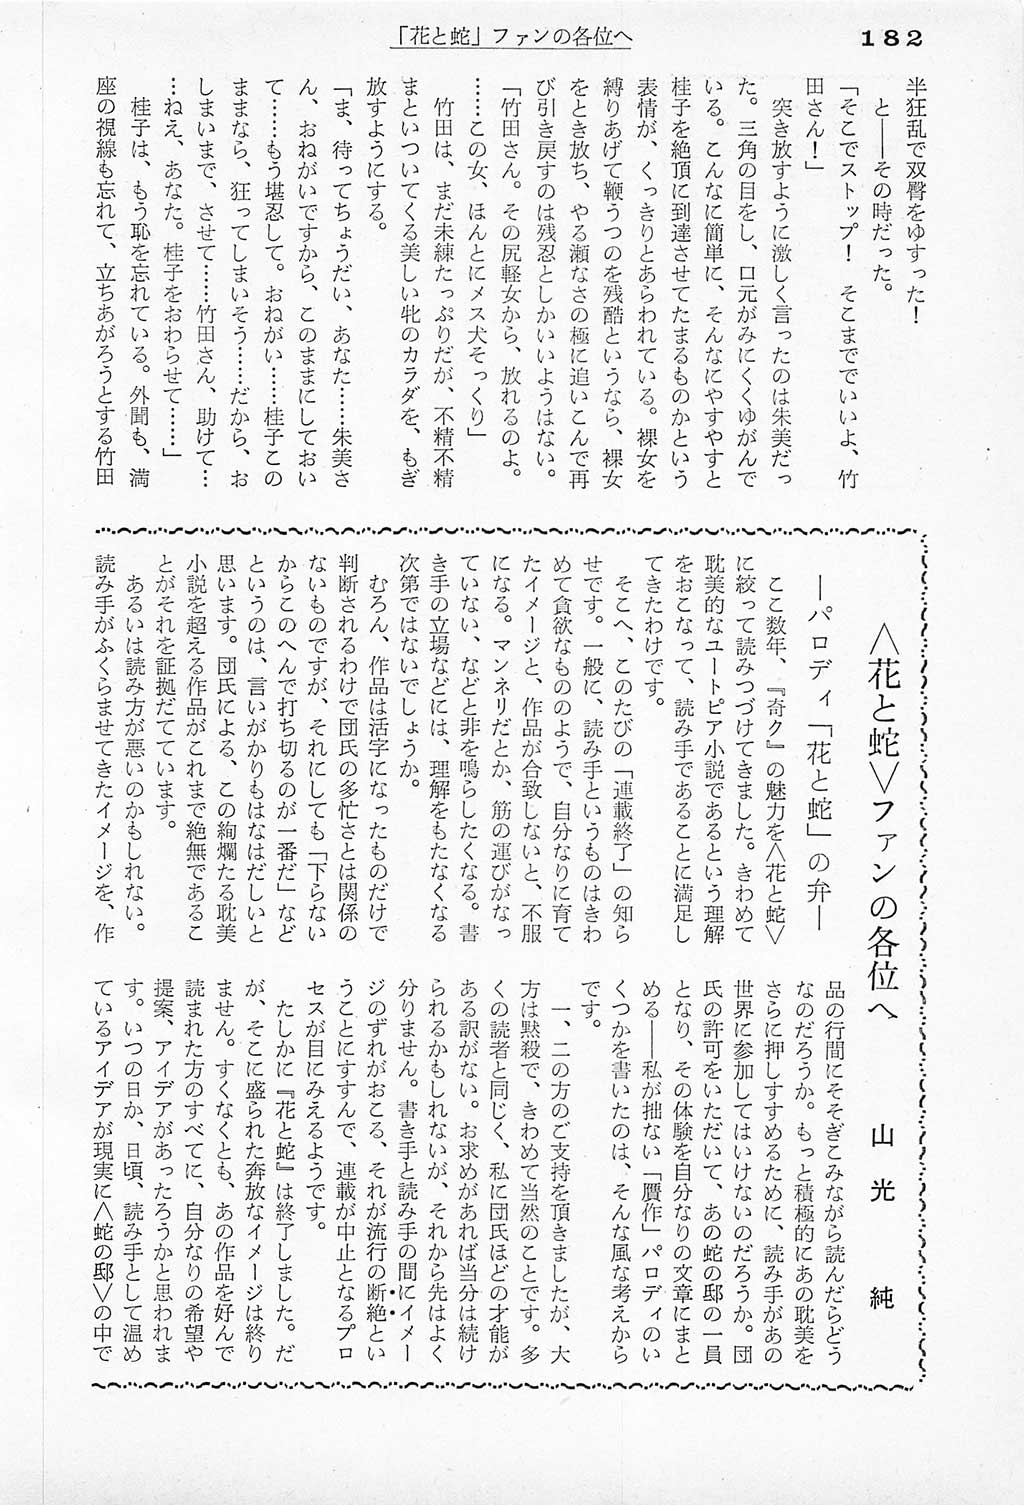 「花と蛇」ファンの各位へ
182
半狂乱で双臀をゆすった！
と――その時だった。
「そこでストップ！　そこまででいいよ、竹
田さん！」
突き放すように激しく言ったのは朱美だっ
た。三角の目をし、口元がみにくくゆがんで
いる。こんなに簡単に、そんなにやすやすと
桂子を絶頂に到達させてたまるものかという
表情が、くっきりとあらわれている。裸女を
縛りあげて鞭うつのを残酷というなら、裸女
をとき放ち、やる瀬なさの極に追いこんで再
び引き戻すのは残忍としかいいようはない。
「竹田さん。その尻軽女から、放れるのよ。
……この女、ほんとにメス犬そっくり」
竹田は、まだ未練たっぷりだが、不精不精
まといついてくる美しい牝のカラダを、もぎ
放すようにする。
「ま、待ってちょうだい、あなた……朱美さ
ん、おねがいですから、このままにしておい
て……もう堪忍して。おねがい……桂子この
ままなら、狂ってしまいそう……だから、お
しまいまで、させて……竹田さん、助けて…
…ねえ、あなた。桂子をおわらせて……」
桂子は、もう恥を忘れている。外聞も、満
座の視線も忘れて、立ちあがろうとする竹田
＜花と蛇＞ファンの各位へ　山光　純
―パロディ「花と蛇」の弁―
ここ数年、『奇ク』の魅力を＜花と蛇＞
に絞って読みつづけてきました。きわめて
耽美的なユートピア小説であるという理解
をおこなって、読み手であることに満足し
てきたわけです。
そこへ、このたびの「連載終了」の知ら
せです。一般に、読み手というものはきわ
めて貪欲なもののようで、自分なりに育て
たイメージと、作品が合致しないと、不服
になる。マンネリだとか、筋の運びがなっ
ていない、などと非を鳴らしたくなる。書
き手の立場などには、理解をもたなくなる
次第ではないでしょうか。
むろん、作品は活字になったものだけで
判断されるわけで団氏の多忙さとは関係の
ないものですが、それにしても「下らない
からこのへんで打ち切るのが一番だ」など
というのは、言いがかりもはなはだしいと
思います。団氏による、この絢爛たる耽美
小説を超える作品がこれまで絶無であるこ
とがそれを証拠だてています。
あるいは読み方が悪いのかもしれない。
読み手がふくらませてきたイメージを、作
品の行間にそそぎこみながら読んだらどう
なのだろうか。もっと積極的にあの耽美を
さらに押しすすめるために、読み手があの
世界に参加してはいけないのだろうか。団
氏の許可をいただいて、あの蛇の邸の一員
となり、その体験を自分なりの文章にまと
める――私が拙ない「贋作」パロディのい
くつかを書いたのは、そんな風な考えから
です。
一、二の方のご支持を頂きましたが、大
方は黙殺で、きわめて当然のことです。多
くの読者と同じく、私に団氏ほどの才能が
ある訳がない。お求めがあれば当分は続け
られるかもしれないが、それから先はよく
分りません。書き手と読み手の間にイメー
ジのずれがおこる、それが流行の断絶とい
うことにすすんで、連載が中止となるプロ
セスが目にみえるようです。
たしかに『花と蛇』は終了しました。だ
が、そこに盛られた奔放なイメージは終り
ません。すくなくとも、あの作品を好んで
読まれた方のすべてに、自分なりの希望や
提案、アイデアがあったろうかと思われま
す。いつの日か、日頃、読み手として温め
ているアイデアが現実に＜蛇の邸＞の中で